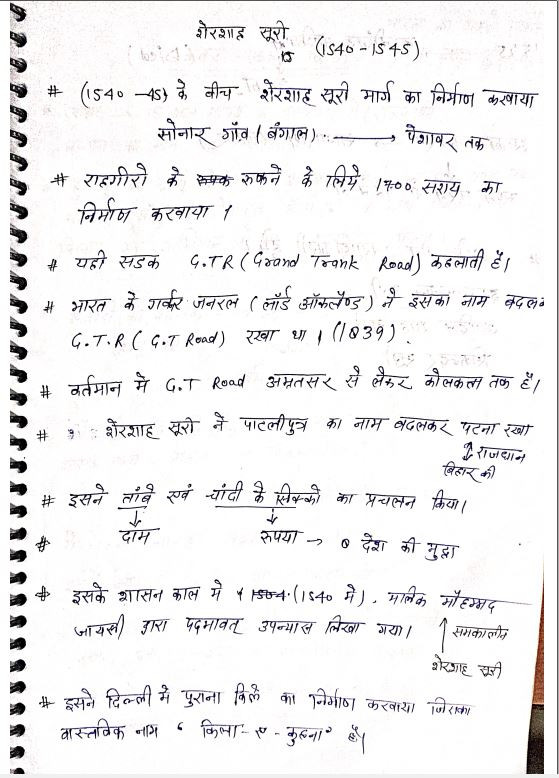 शेरशाह सूरी
(1540-1545)
# (1540-45) के बीच शेरशाह सूरी मार्ग का निर्माण करवाया
सोनार गाँव (बंगाल) → पेशावर तक
# राहगीरो के रुकने के लिये 1700 सराय का
निर्माण करवाया ।
# यही सडक G.T.R (Grand Trank Road) कहलाती है।
# भारत के गर्वकर जनरल (लॉर्ड ऑकलैण्ड) ने इसका नाम बदलक
G.T.R (G.T Road) रखा था । (1839).
# वर्तमान मे G.T Road अम्रतसर से लेकर कोलकता तक है।
# शेरशाह सूरी ने पाटलीपुत्र का नाम बदलकर पटना रखा
राजधान
बिहार की
# इसने तांबे एवं चांदी के सिक्को का प्रचलन किया।
# दाम रुपया → देश की मुद्रा
# इसके शासन काल मे (1540 मे), मालिक मौहम्मद
जायसी द्वारा पदमावत् उपन्यास लिखा गया। समकालीन
शेरशाह सूरी
# इसने दिल्ली मे पुराना किले का निर्माण करवाया जिसका
वास्तविक नाम "किला-ए-कुहना" है।